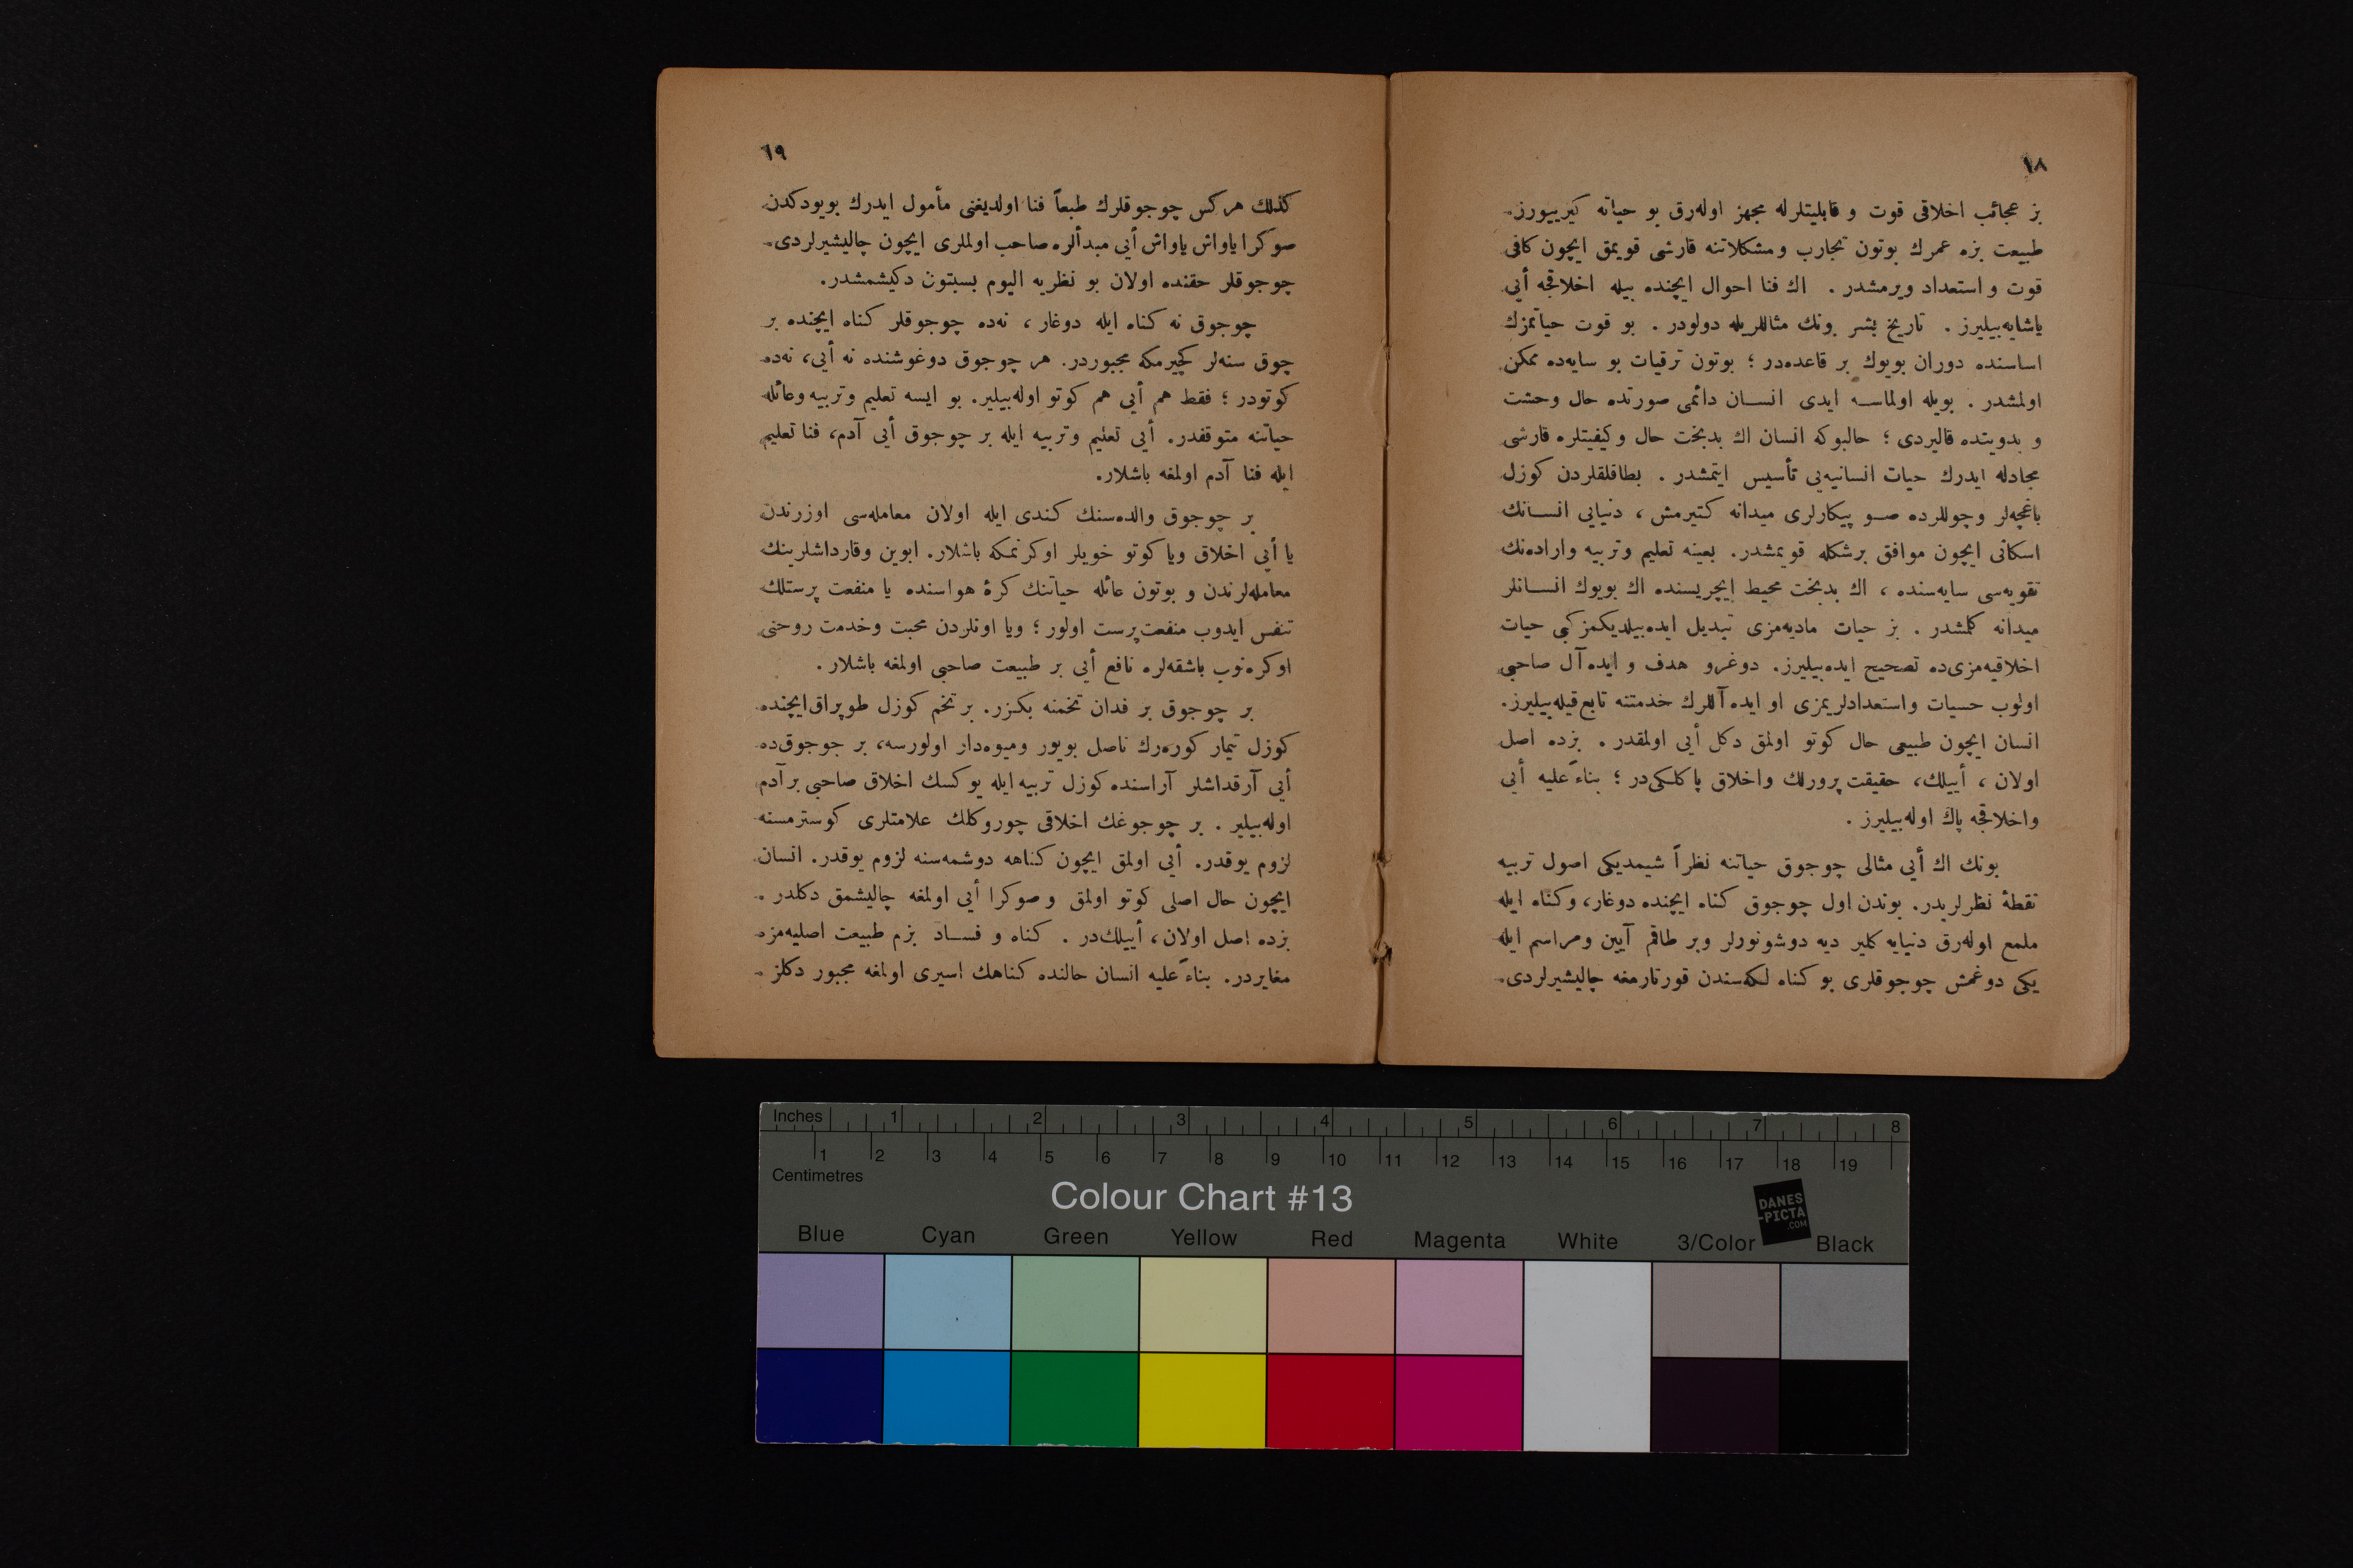 ١٨
بز عجائب اخلاقی قوت و قابلیتلرله مجهز اوله‌رق بو حیاته کیرییورز.
طبیعت بزه عمرك بوتون تجارب و مشکلاتنه قارشی قویمق ایچون کافی
قوت و استعداد ویرمشدر . اك فنا احوال ایچنده بیله اخلاقجه أیی
یاشایه‌بیلیرز . تاریخ بشر بونك مثاللریله دولودر . بو قوت حیاتمزك
اساسنده دوران بویوك بر قاعده‌در ؛ بوتون ترقیات بو سایه‌ده ممکن
اولمشدر . بویله اولماسه ایدی انسان دائمی صورتده حال وحشت
و بدویتده قالیردی ؛ حالبوکه انسان اك بدبخت حال و کیفیتلره قارشی
مجادله ایدرك حیات انسانیه‌یی تأسیس ایتمشدر . بطاقلقلردن کوزل
باغچه‌لر و چوللرده صو پیکارلری میدانه کتیرمش ، دنیایی انسانك
اسکانی ایچون موافق برشکله قویمشدر. بعینه تعلیم و تربیه و اراده‌نك
تقویه‌سی سایه‌سنده ، اك بدبخت محیط ایچریسنده اك بویوك انسانلر
میدانه کلمشدر . بز حیات مادیه‌مزی تبدیل ایده‌بیلدیکمز کبی حیات
اخلاقیه‌مزی‌ده تصحیح ایده‌بیلیرز. دوغرو هدف و ایده‌آل صاحبی
اولوب حسیات واستعدادلریمزی او ایده‌آللرك خدمتنه تابع قیله‌بیلیرز.
انسان ایچون طبیعی حال کوتو اولمق دکل أیی اولمقدر . بزده اصل
اولان ، أییلك، حقیقت پرورلك واخلاق پاکلکی‌در ؛ بناءً علیه أیی
واخلاقجه پاك اوله‌بیلیرز .
بونك اك أیی مثالی چوجوق حیاتنه نظراً شیمدیکی اصول تربیه
نقطۀ نظرلریدر. بوندن اول چوجوق کناه ایچنده دوغار، وکناه ایله
ملمع اوله‌رق دنیایه کلیر دیه دوشونورلر وبر طاقم آیین ومراسم ایله
یکی دوغمش چوجوقلری بو کناه لکه‌سندن قورتارمغه چالیشیرلردی.
١٩
کذلك هرکس چوجوقلرك طبعاً فنا اولدیغنی مأمول ایدرك بویودکدن
صوکرا یاواش یاواش أیی مبدألره صاحب اولملری ایچون چالیشیرلردی.
چوجوقلر حقنده اولان بو نظریه الیوم بسبتون دکیشمشدر.
چوجوق نه کناه ایله دوغار ، نه‌ده چوجوقلر کناه ایچنده بر
چوق سنه‌لر کچیرمکه مجبوردر. هر چوجوق دوغوشنده نه أیی، نه‌ده
کوتودر ؛ فقط هم أیی هم کوتو اوله‌بیلیر. بو ایسه تعلیم وتربیه وعائله
حیاتنه متوقفدر. أیی تعلیم وتربیه ایله بر چوجوق أیی آدم، فنا تعلیم
ایله فنا آدم اولمغه باشلار.
بر چوجوق والده‌سنك کندی ایله اولان معامله‌سی اوزرندن
یا أیی اخلاق ویا کوتو خویلر اوکرنمکه باشلار. ابوین وقارداشلرینك
معامله‌لرندن و بوتون عائله حیاتنك کرۀ هواسنده یا منفعت پرستلك
تنفس ایدوب منفعت‌پرست اولور ؛ ویا اونلردن محبت وخدمت روحنی
اوکره‌نوب باشقه‌لره نافع أیی بر طبیعت صاحبی اولمغه باشلار .
بر چوجوق بر فدان تخمنه بکزر. بر تخم کوزل طوپراق ایچنده
کوزل تیمار کوره‌رك ناصل بویور ومیوه‌دار اولورسه، بر جوجوق‌ده
أیی آرقداشلر آراسنده کوزل تربیه ایله یوکسك اخلاق صاحبی بر آدم
اوله‌بیلیر . بر چوجوغك اخلاقی چوروکلك علامتلری کوسترمسنه
لزوم یوقدر. أیی اولمق ایچون کناهه دوشمه‌سنه لزوم یوقدر. انسان
ایچون حال اصلی کوتو اولمق و صوکرا أیی اولمغه چالیشمق دکلدر .
بزده اصل اولان، أییلك‌در . کناه و فساد بزم طبیعت اصلیه‌مزه
مغایردر. بناءً علیه انسان حالنده کناهك اسیری اولمغه مجبور دکلز .
Inches 1 2 3 4 5 6 7 8
1 2 3 4 5 6 7 8 9 10 11 12 13 14 15 16 17 18 19
Centimetres
Colour Chart #13
DANES
-PICTA
.COM
Blue Cyan Green Yellow Red Magenta White 3/Color Black